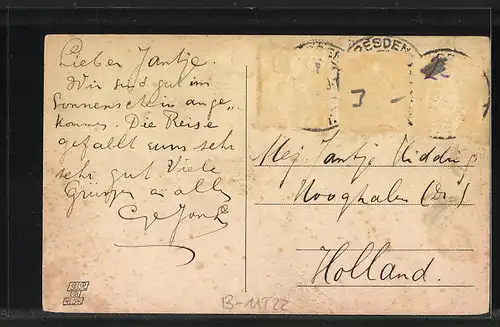 Lieber Jantje.
Wir sind gut im
Sonnenschein ange„
kommen. Die Reise
gefällt uns sehr
sehr gut Viele
Grüssen an alle
DRESDEN
Mej Jantje Hidding
Hooghalen (Dr)
Holland.